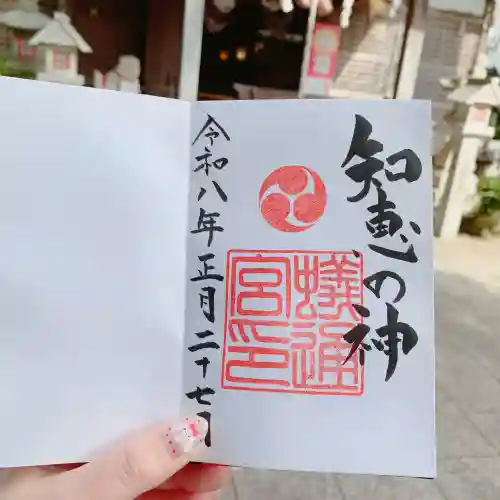 知恵の神
蟻通
宮印
令和八年正月二十七日